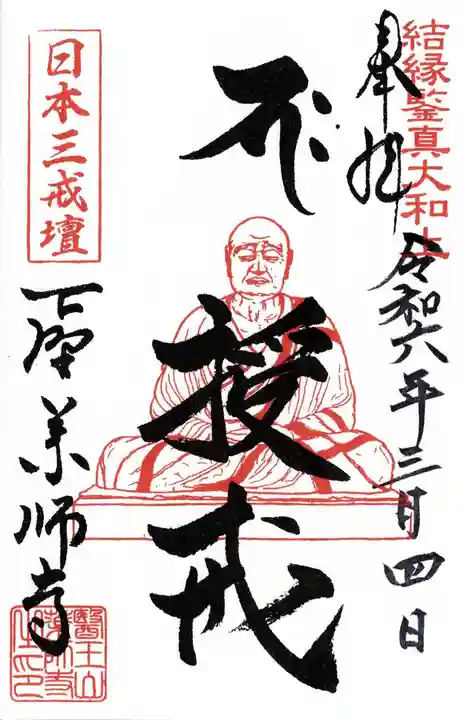 結縁鑒真大和上
奉拝
令和六年三月四日
授戒
日本三戒壇
下埜薬師寺
醫王山